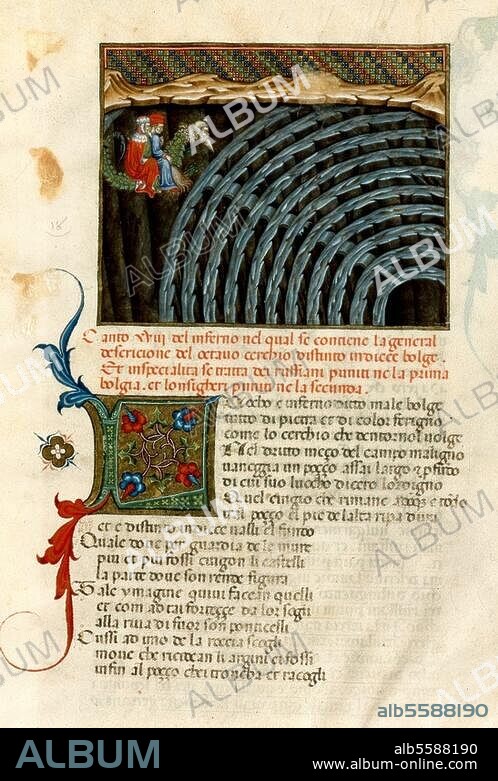 Canto XViii del inferno nel qual se contiene la general
descricione del octavo cerchio distinto in diece bolge.
Et in specialita se tratta dei ruffiani puniti ne la prima
bolgia. et lo nsigheri puniti ne la seconda.
Luocho e inferno ditto male bolge
tutto di pietra et di color ferigno
come lo cerchio che dentorno l volge
Nel dritto meço del campo maligno
vaneggia un poçço assai largo et pfũdo
di cui suo luocho dicero lordigno
Quel cingio che rimane
tral poçço el pie de lalta ripa dura
et e distincto in diece valli el fũdo
Quale dove per guardia de le mure
piu et piu fossi cingon li castelli
la parte dove son rende figura
Tale ymagine quivi facean quelli
et com ad tai forteççe da lor sogli
alla riva di fuor son ponticelli
Cussi ad imo de la roccia scogli
movie che ricidean li argini et fossi
infin al poçço chei troncha et racogli
18
ALBUM
alb5588190
ALBUM
alb5588190
www.album-online.com